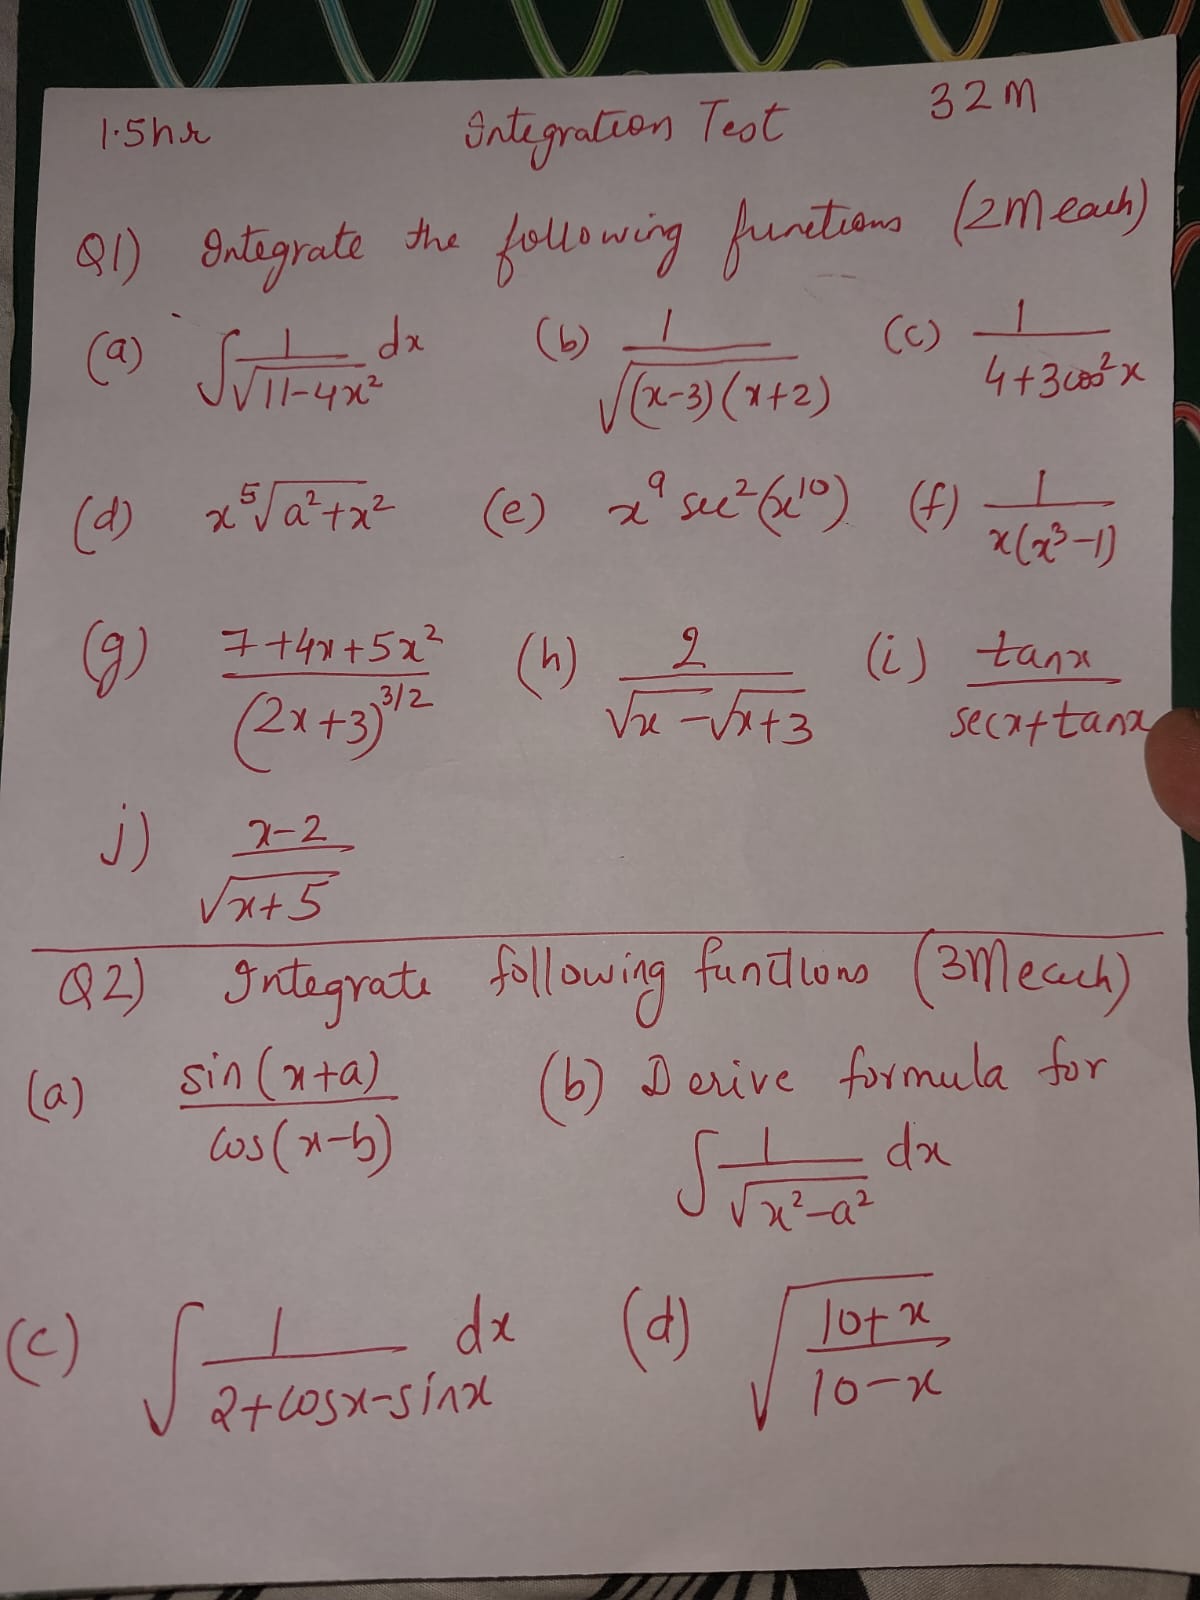 1.5hr Integration Test 32M
Q1) Integrate the following functions (2M each)
(a) ∫ 1/√(11-4x²) dx (b) 1/√((x-3)(x+2)) (c) 1/(4+3cos²x)
(d) x⁵√(a²+x²) (e) x⁹ sec²(x¹⁰) (f) 1/(x(x³-1))
(g) (7+4x+5x²)/(2x+3)^(3/2) (h) 2/(√x-√(x+3)) (i) tanx/(secx+tanx
j) (x-2)/√(x+5)
Q2) Integrate following functions (3M each)
(a) sin(x+a)/cos(x-b) (b) Derive formula for
∫ 1/√(x²-a²) dx
(c) ∫ 1/(2+cosx-sinx) dx (d) √((10+x)/(10-x))